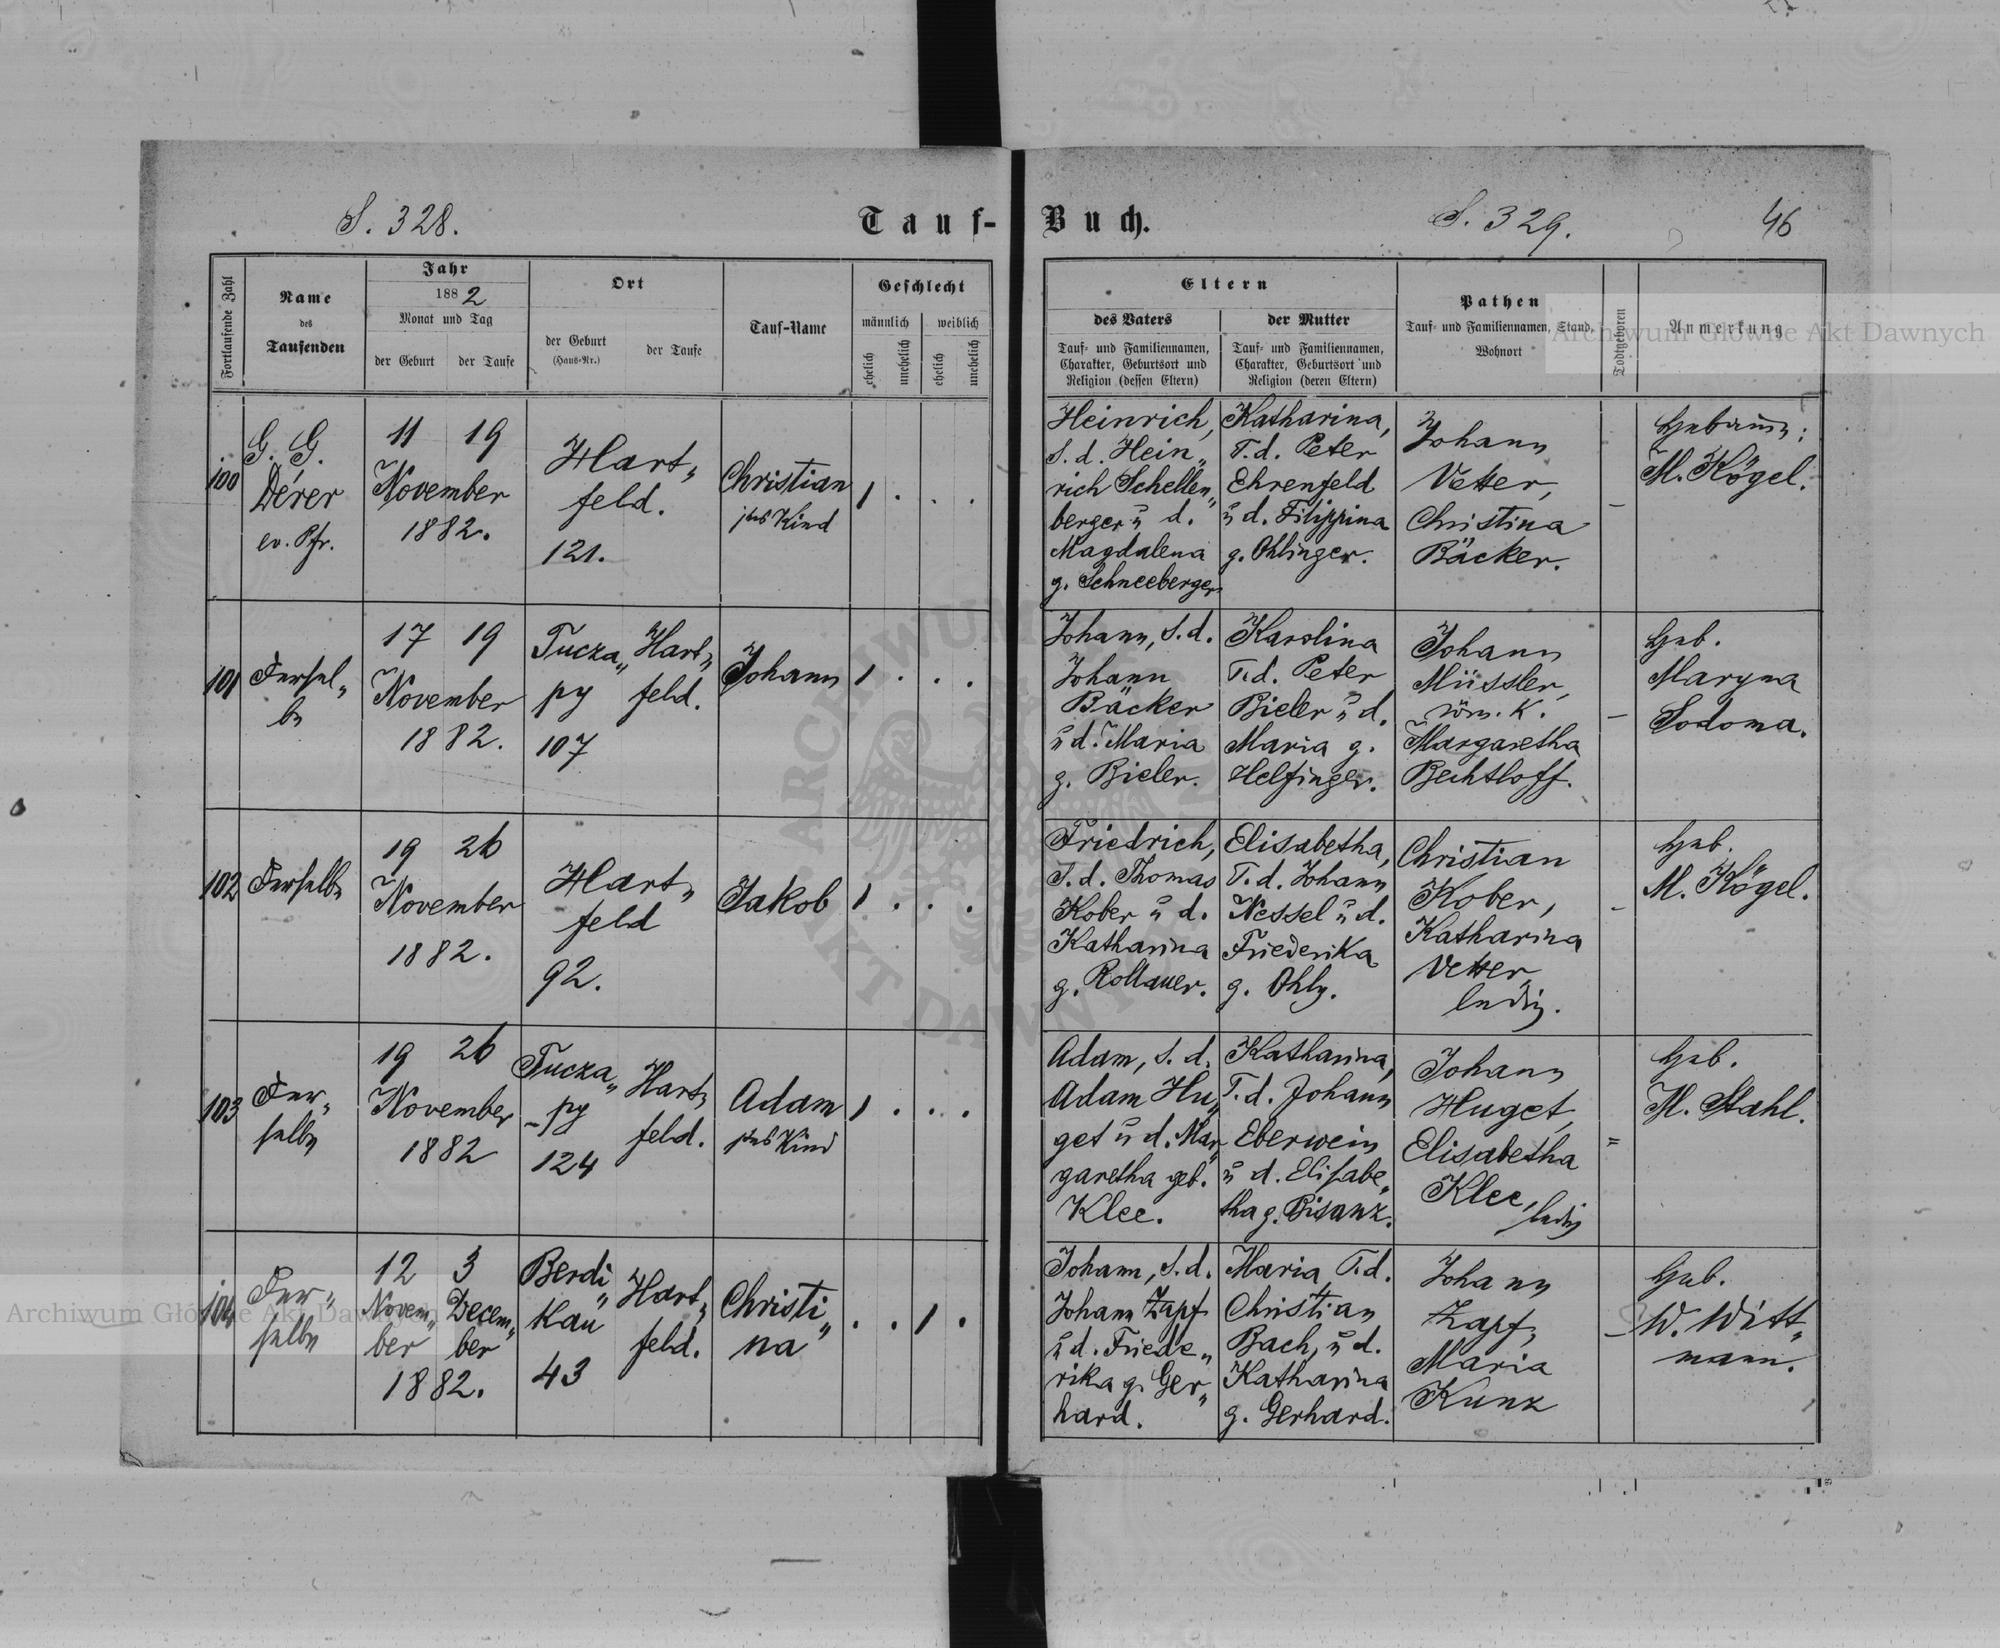 S. 328.
Tauf-
Buch.
S. 329.
46
Fortlaufende Zahl
Name
des
Taufenden
Jahr
1882
Monat und Tag
der Geburt
der Taufe
Ort
der Geburt
(Haus-Nr.)
der Taufe
Tauf-Name
Geschlecht
männlich
weiblich
ehelich
unehelich
ehelich
unehelich
Eltern
des Vaters
Tauf- und Familiennamen,
Charakter, Geburtsort und
Religion (dessen Eltern)
der Mutter
Tauf- und Familiennamen,
Charakter, Geburtsort und
Religion (deren Eltern)
Pathen
Tauf- und Familiennamen, Stand,
Wohnort
Todtgeboren
Anmerkung
Archiwum Główne Akt Dawnych
100
G. G.
Dérer
ev. Pfr.
11 19
November
1882.
Hart„
feld.
121.
Christian
1tes Kind
1 . . .
Heinrich,
S. d. Hein„
rich Schellen„
berger u. d.
Magdalena
g. Schneeberger
Katharina,
T. d. Peter
Ehrenfeld
u. d. Filippina
g. Ohlinger.
Johann
Vetter,
Christina
Bäcker.
–
Hebamme:
M. Kögel.
101
Dersel„
be
17 19
November
1882.
Tucza„
py
107
Hart„
feld.
Johann
1 . . .
Johann, S. d.
Johann
Bäcker
u. d. Maria
g. Bieler.
Karolina
T. d. Peter
Bieler u. d.
Maria g.
Helfinger.
Johann
Müssler,
röm. K.
Margaretha
Bechtloff.
–
Heb.
Maryna
Sodoma.
102
Derselbe
19 26
November
1882.
Hart„
feld
92.
Jakob
1 . . .
Friedrich,
S. d. Thomas
Kober u. d.
Katharina
g. Rollauer.
Elisabetha,
T. d. Johann
Nessel u. d.
Friederika
g. Ohly.
Christian
Kober,
Katharina
Vetter,
ledig.
–
Heb.
M. Kögel.
103
Der„
selbe
19 26
November
1882
Tucza„
py
124
Hart„
feld.
Adam
1tes Kind
1 . . .
Adam, S. d.
Adam Hu„
get u. d. Mar„
garetha geb.
Klee.
Katharina,
T. d. Johann
Eberwein
u. d. Elisabe„
tha g. Bisanz.
Johann
Huget,
Elisabetha
Klee,
ledig
=
Heb.
M. Stahl.
104
Der„
selbe
12 3
Novem„ Decem„
ber ber
1882.
Berdi„
kau
43
Hart„
feld.
Christi„
na
. . 1 .
Johann, S. d.
Johann Zapf
u. d. Friede„
rika g. Ger„
hard.
Maria, T. d.
Christian
Bach, u. d.
Katharina
g. Gerhard.
Johann
Zapf,
Maria
Kunz
–
Heb.
W. Witt„
mann.
Archiwum Główne Akt Dawnych
ARCHIWUM
AKT DAWNYCH